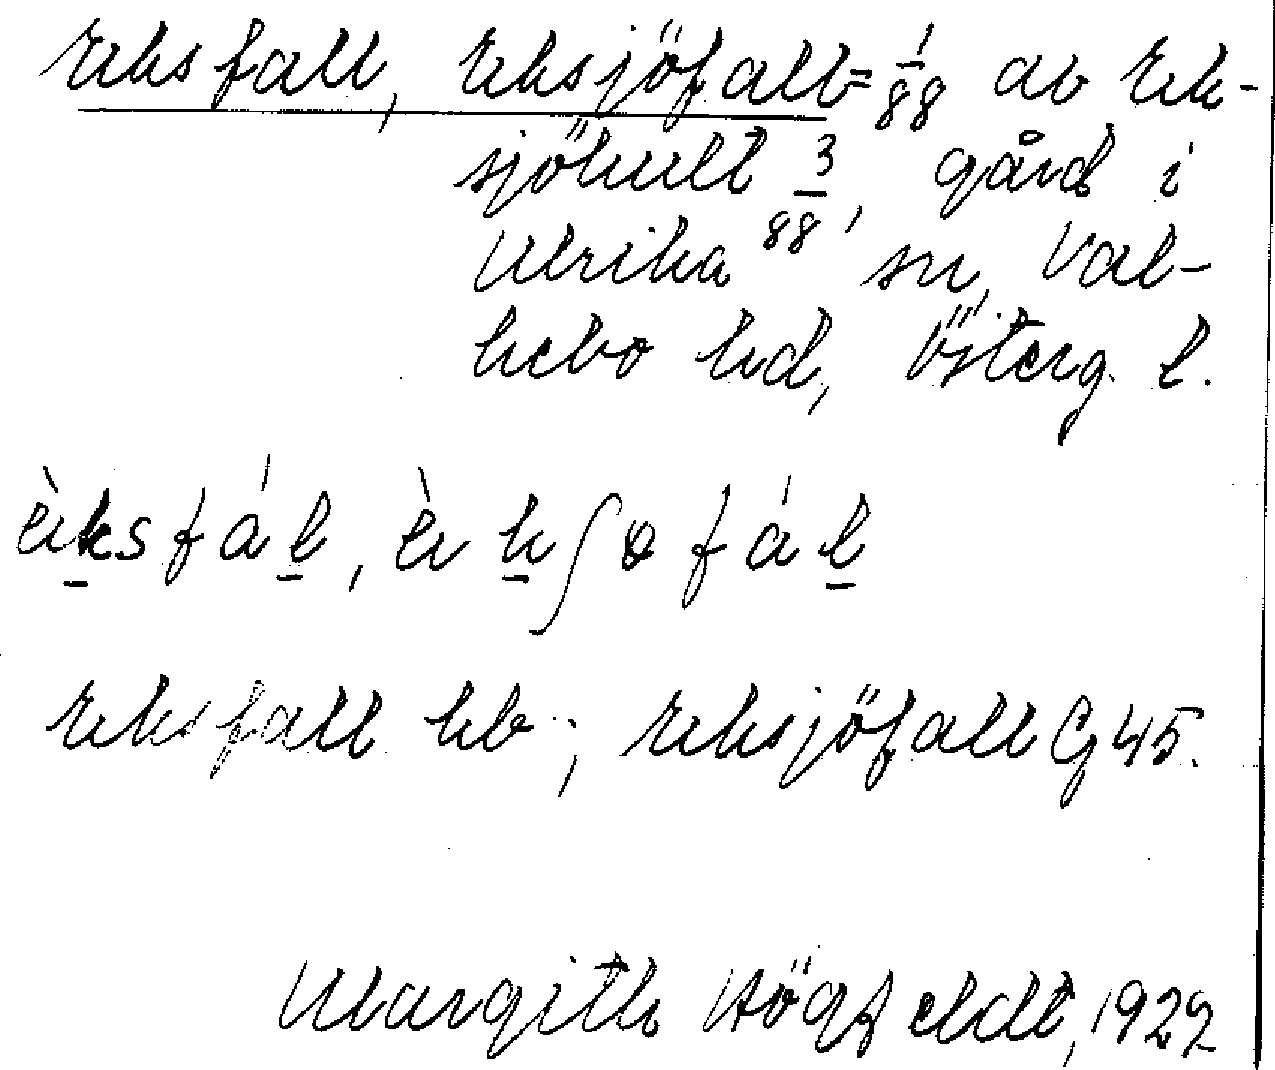 Eksfall, Eksjöfall = 1/88 av Ek-
sjöhult 3/88, gård i
Ulrika sn, Val-
kebo hd, Österg. l.
Eksfall kb.; Eksjöfall G 45.
Margith Högfeldt, 1929